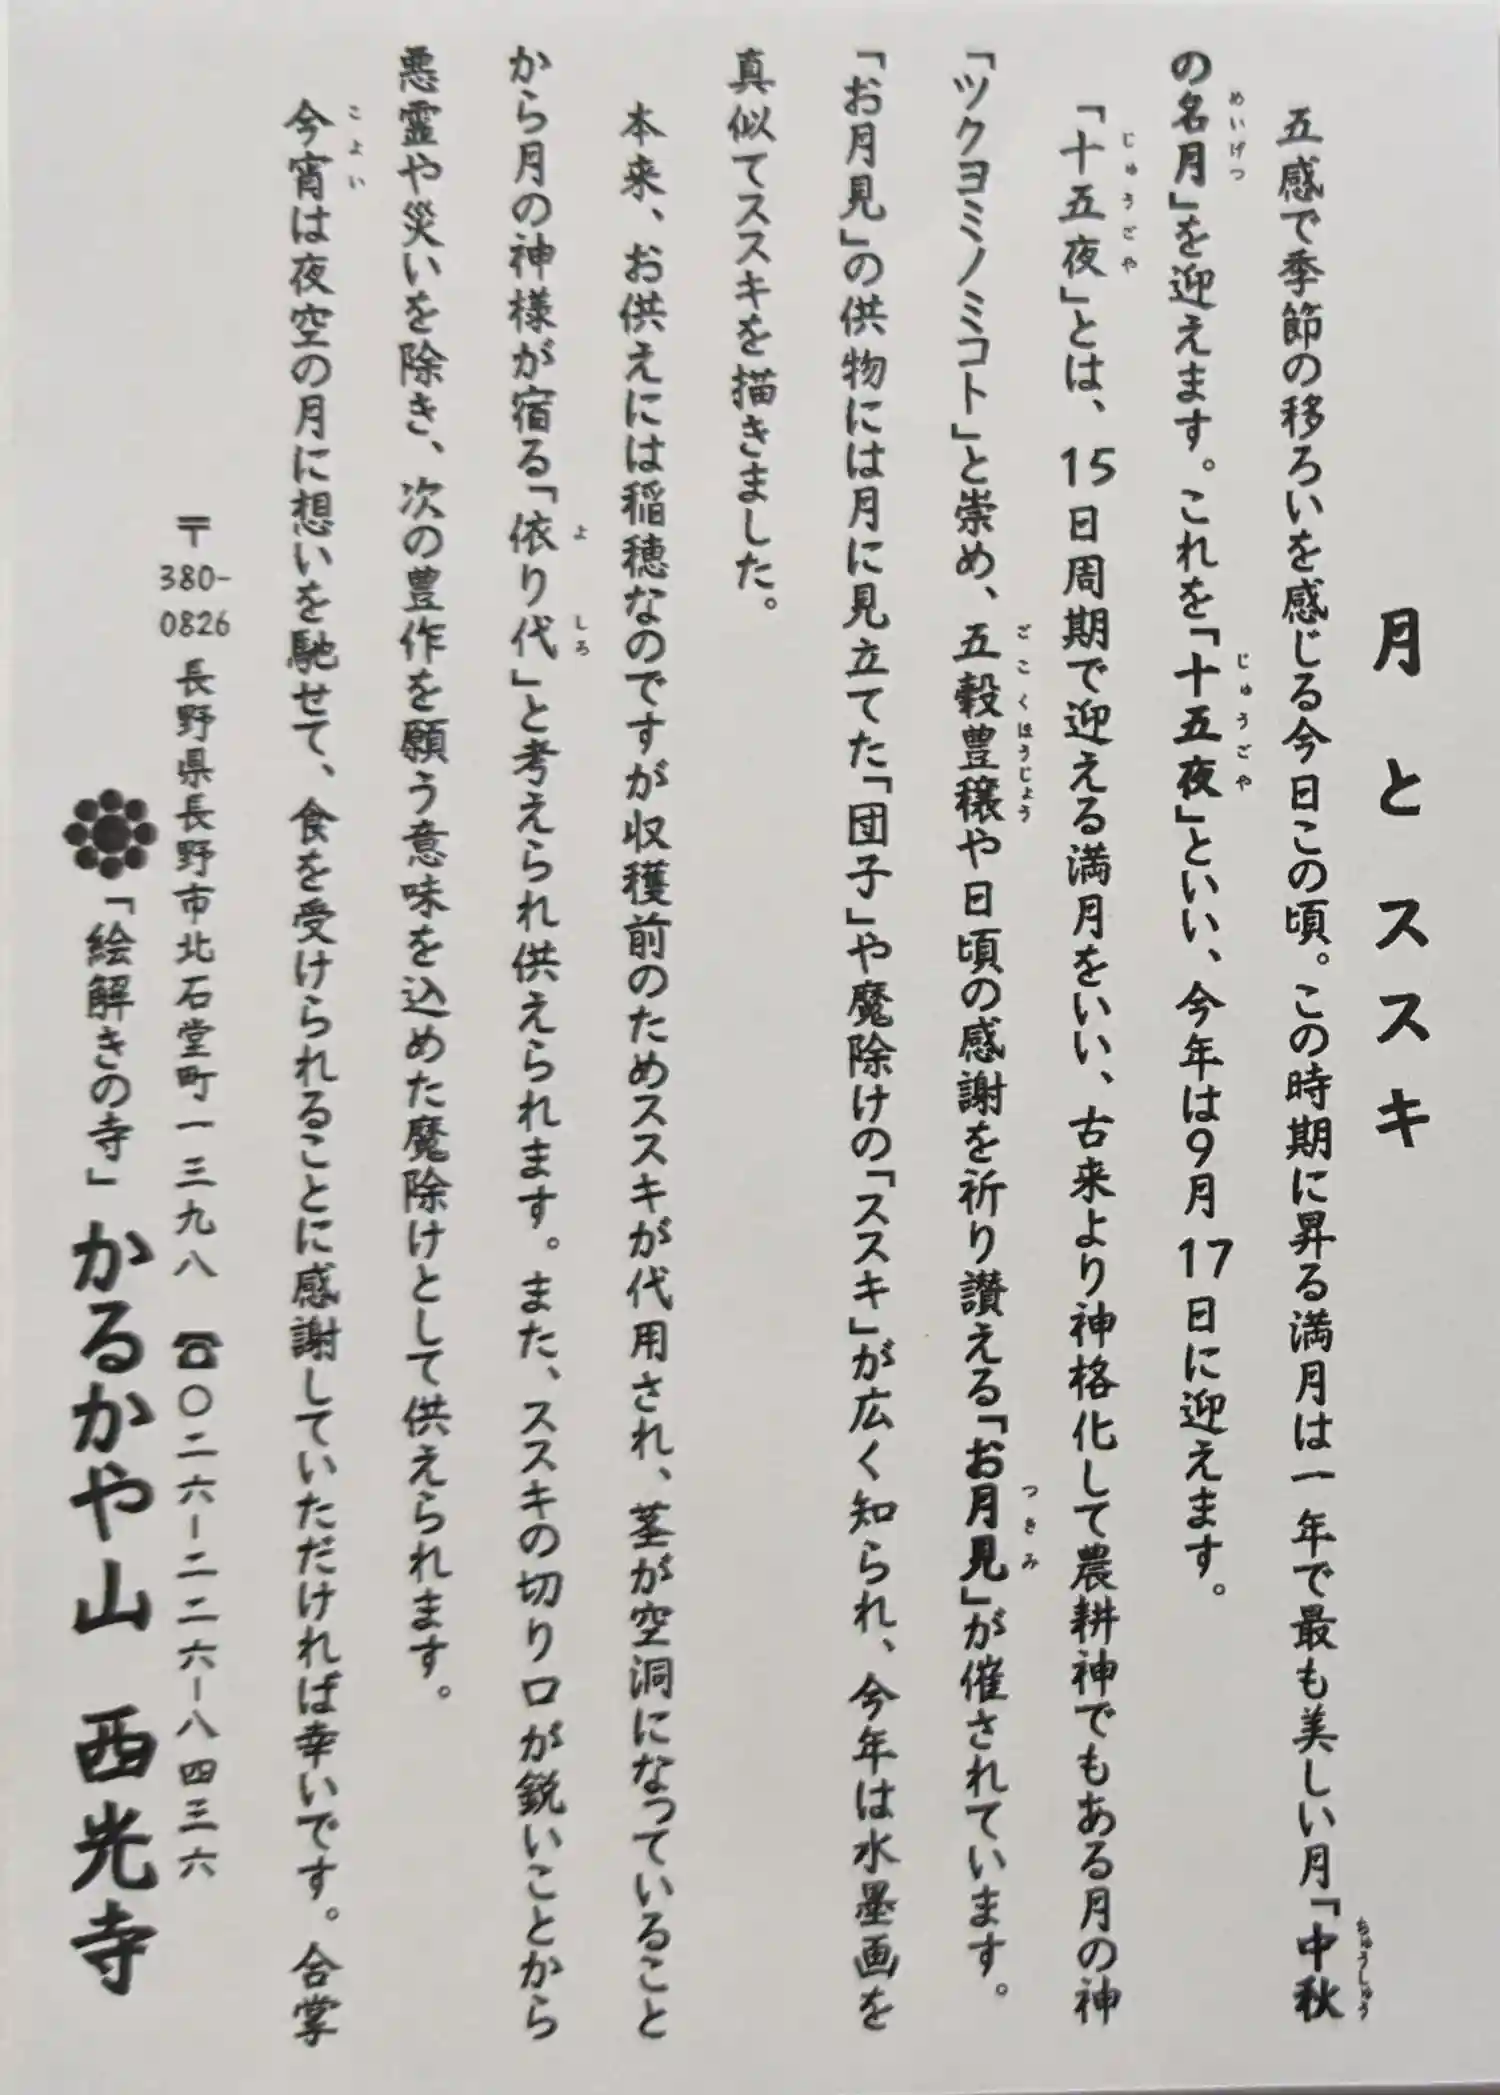 月とススキ
五感で季節の移ろいを感じる今日この頃。この時期に昇る満月は一年で最も美しい月「中秋
の名月」を迎えます。これを「十五夜」といい、今年は9月17日に迎えます。
「十五夜」とは、15日周期で迎える満月をいい、古来より神格化して農耕神でもある月の神
「ツクヨミノミコト」と崇め、五穀豊穣や日頃の感謝を祈り讃える「お月見」が催されています。
「お月見」の供物には月に見立てた「団子」や魔除けの「ススキ」が広く知られ、今年は水墨画を
真似てススキを描きました。
本来、お供えには稲穂なのですが収穫前のためススキが代用され、茎が空洞になっていること
から月の神様が宿る「依り代」と考えられ供えられます。また、ススキの切り口が鋭いことから
悪霊や災いを除き、次の豊作を願う意味を込めた魔除けとして供えられます。
今宵は夜空の月に想いを馳せて、食を受けられることに感謝していただければ幸いです。合掌
〒380-0826 長野県長野市北石堂町一三九八 ☎〇二六ー二二六ー八四三六
「絵解きの寺」かるかや山 西光寺